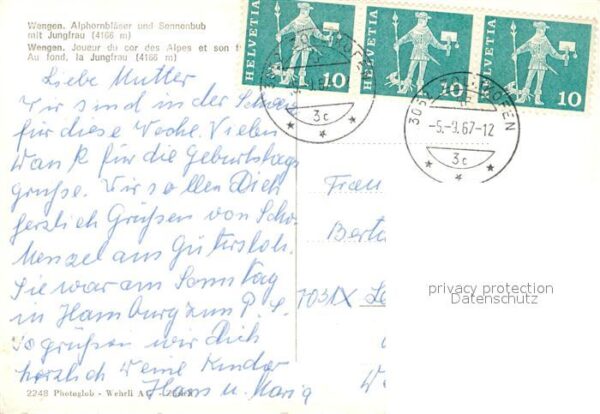 Wengen. Alphornbläser und Sennenbub
mit Jungfrau (4166 m)
Wengen. Joueur du cor des Alpes et son f
Au fond, la Jungfrau (4166 m)
Liebe Mutter
Wir sind in der Schweiz
für diese Woche. Vielen
Dank für die Geburtstags
grüße. Wir sollen Dich
herzlich Grüßen von
Menzel aus Gütersloh.
Sie war am Sonntag
in Hamburg zum
So grüßen wir Dich
herzlich Deine Kinder
Hans u. Maria
2248 Photoglob - Wehrli A
HELVETIA 10
HELVETIA 10
HELVETIA 10
3c
-5.-9.67-12
3c
Frau
Berta
7031X
privacy protection
Datenschutz